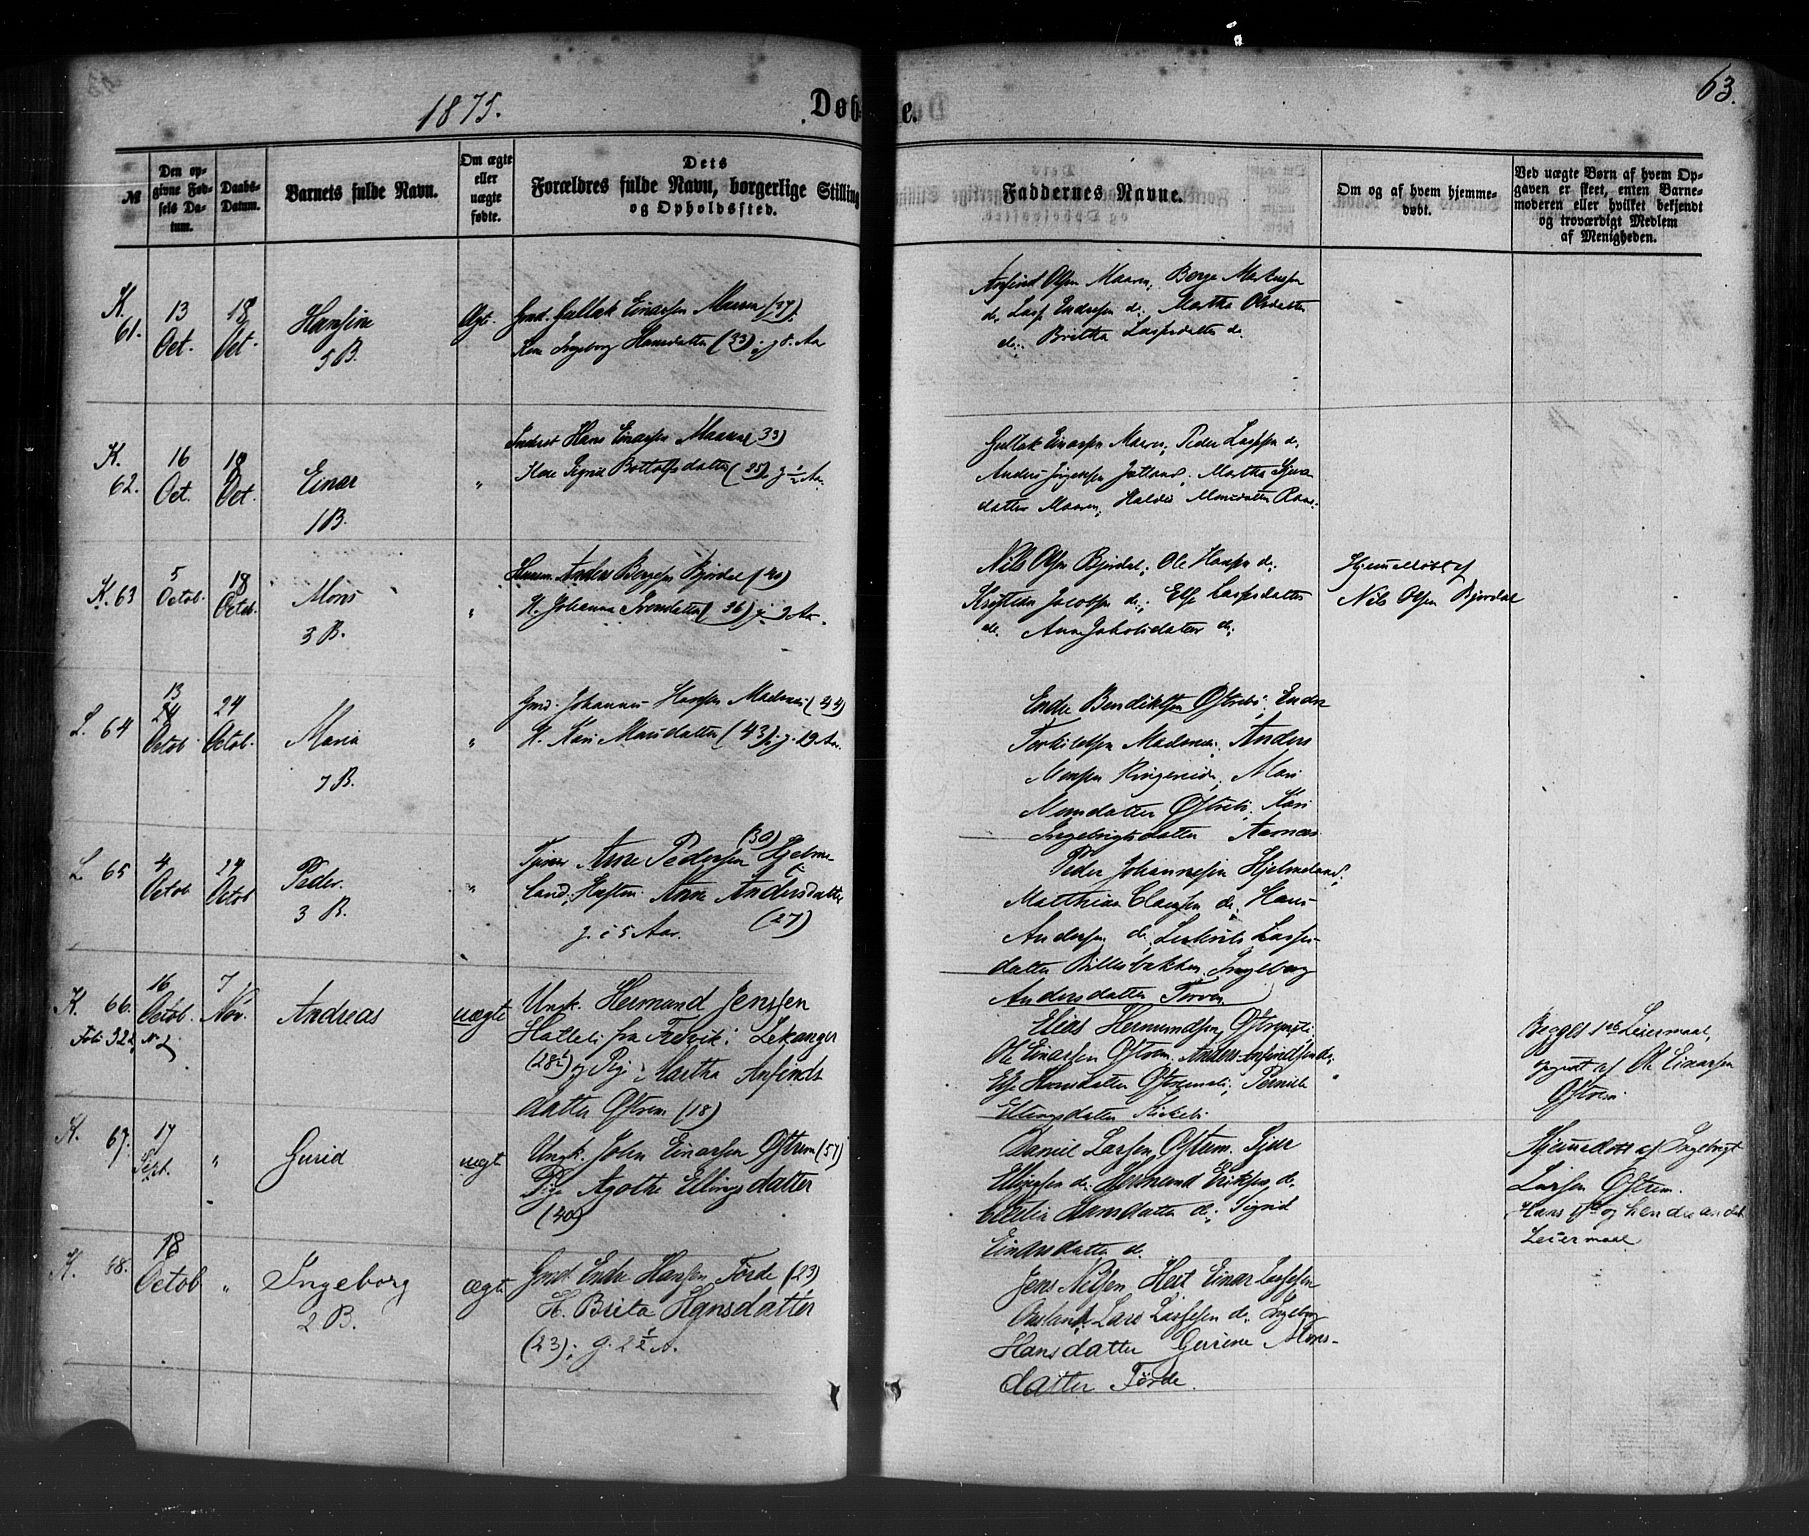 1875.
Døb
e.
63.
№
Den op-
givne Fød-
sels Da-
tum.
Daabs-
Datum.
Barnets fulde Navn.
Om ægte
eller
uægte
fødte.
Dets
Forældres fulde Navn, borgerlige Stilling
og Opholdssted.
Faddernes Navne.
Om og af hvem hjemme-
døbt.
Ved uægte Børn af hvem Op-
gaven er skeet, enten Barne-
moderen eller hvilket bekjendt
og troværdigt Medlem
af Menigheden.
K.
61.
13
Oct.
18
Oct.
Hansine
5 B.
Ægte
Gmd. Gullak Einarsen Maaren (37)
Kone Ingeborg Hansdatter (33) g. 8. Aa
Anfind Olsen Maaren, Børge
d. Endresen d. Martha Olsdatter
d. Britha Lassesdatter d.
K.
62.
16
Oct.
18
Oct.
Einar
1 B.
"
Inderst Hans Einarsen Maaren (33)
Kone Sigrid Bottolfsdatter (25) g ½ Aa.
Gullak Einarsen Maaren, Peder Lassesen d.
Anders Jørgensen Martha
datter Maaren, Monsdatter
K. 63
5
Octob.
18
Octob.
Mons
3 B.
"
Husm. Anders Børgesen Bjordal (40)
K. Johanna Ivarsdatter (36) g. 2 Aa.
Nils Olsen Bjordal, Ole Hansen d.
Jacobsen d.; Else Lassesdatter
d. Anna Jakobsdatter d.
Hjemmedøbt af
Nils Olsen Bjordal
L. 64
13
Octob.
24
Octob.
Maria
7 B.
"
Gmd. Johannes Hansen (44)
K. Kari Monsdatter (43) g. 19 Aa.
Endre Bendiktsen Østrebø, Endre
Torkildsen Anders
Monsen Ringereide, Mari
Monsdatter Østrebø, Kari
Ingebrigtsdatter Aarnæs
L. 65
4
Octob
24
Octob
Peder.
3 B.
"
Arne Pedersen Hjelme
(30)
land, Anne Andersdatter
g. i 5 Aar. (27)
Peder Johannesen Hjelmeland;
Matthias Clausen d. Hans
Andersen d. Lasses-
datter Ingeborg
Andersdatter Torven
K. 66.
Fol. 322, No 2
16
Octob.
7
Nov.
Andreas
uægte
Ungk. Hermund Jensen
Halleli fra Fresvik i Lekanger
(28½) og Pig. Martha Anfinds
datter Østrem (18)
Elias Hermundsen
Ole Einarsen Østrem, Anders Anfindsen d.;
Else Hansdatter Pernille
Ellingsdatter Kirkebø
Begges 1ste Leiermaal,
opgivet af Ole Einarsen
Østrem
K. 67.
17
Sept.
"
Gurid
uægt
Ungk. John Einarsen Østrem (51)
Pige Agothe Ellingsdatter
(40)
Daniel Larsen Østrem,
Ellingsen d. Hermund Eriksen d.
Hansdatter d.; Sigrid
Einarsdatter d.
Hjemmedøbt af Ingebrigt
Larsen Østrem.
Hans 1ste og hendes andet
Leiermaal
K. 68.
18
Octob
"
Ingeborg
2 B.
ægte
Gmd. Endre Hansen Førde (23)
K. Brita Hansdatter
(23); g. 2½ A.
Jens Nilsen, Einar Lassesen
Lars Lassesen d. Ingeborg
Hansdatter Mons-
datter Førde.